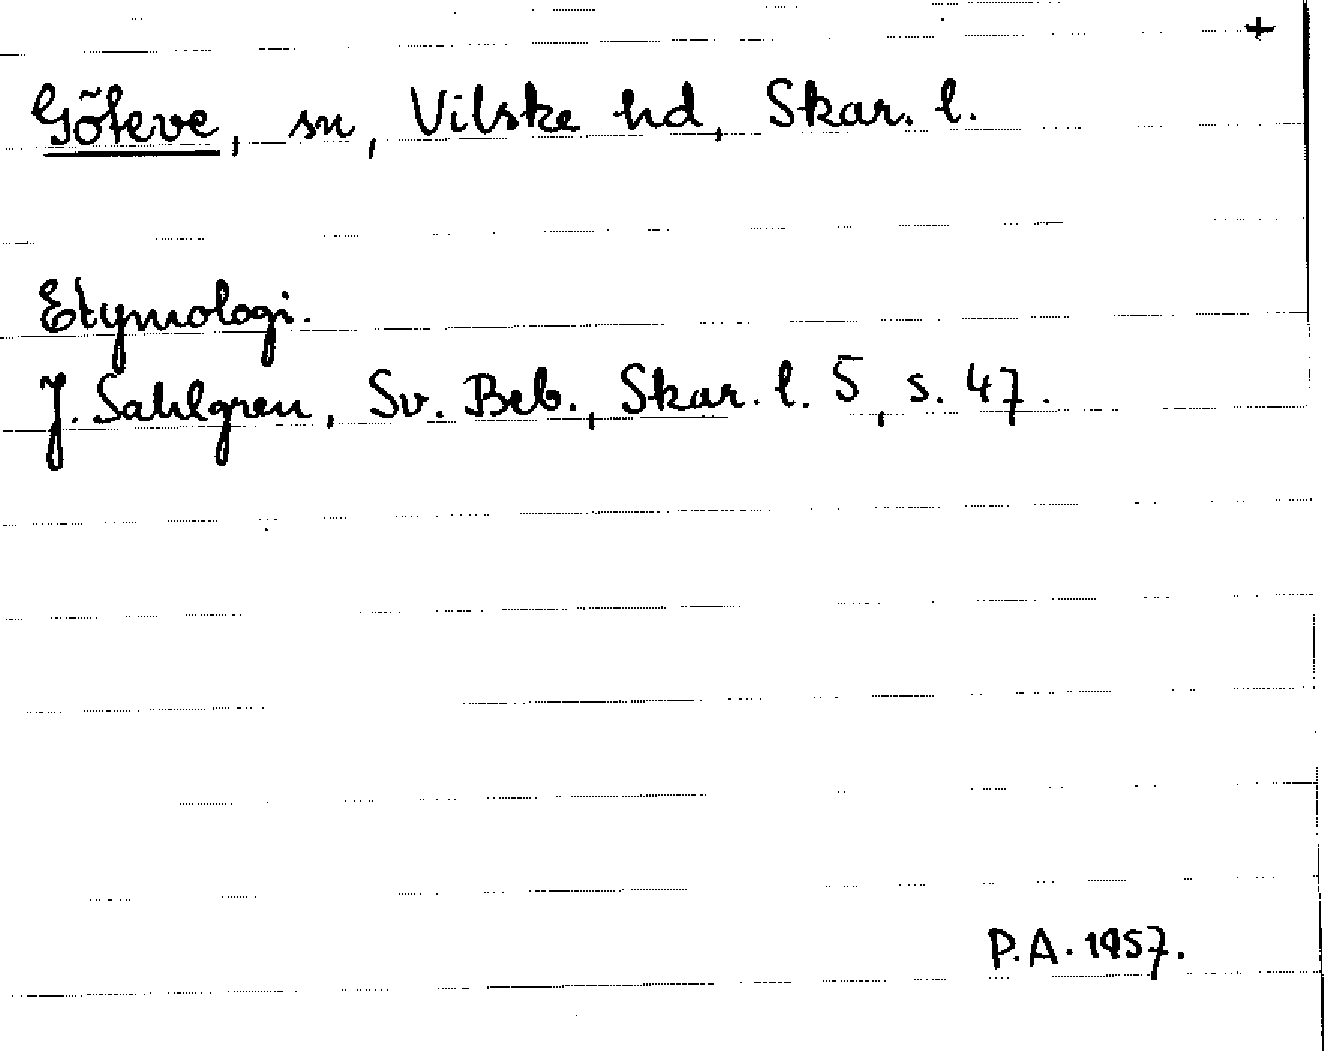 +
Göteve, sn, Vilske hd, Skar. l.
Etymologi.
J. Sahlgren, Sv. Beb., Skar. l. 5, s. 47.
P.A. 1957.